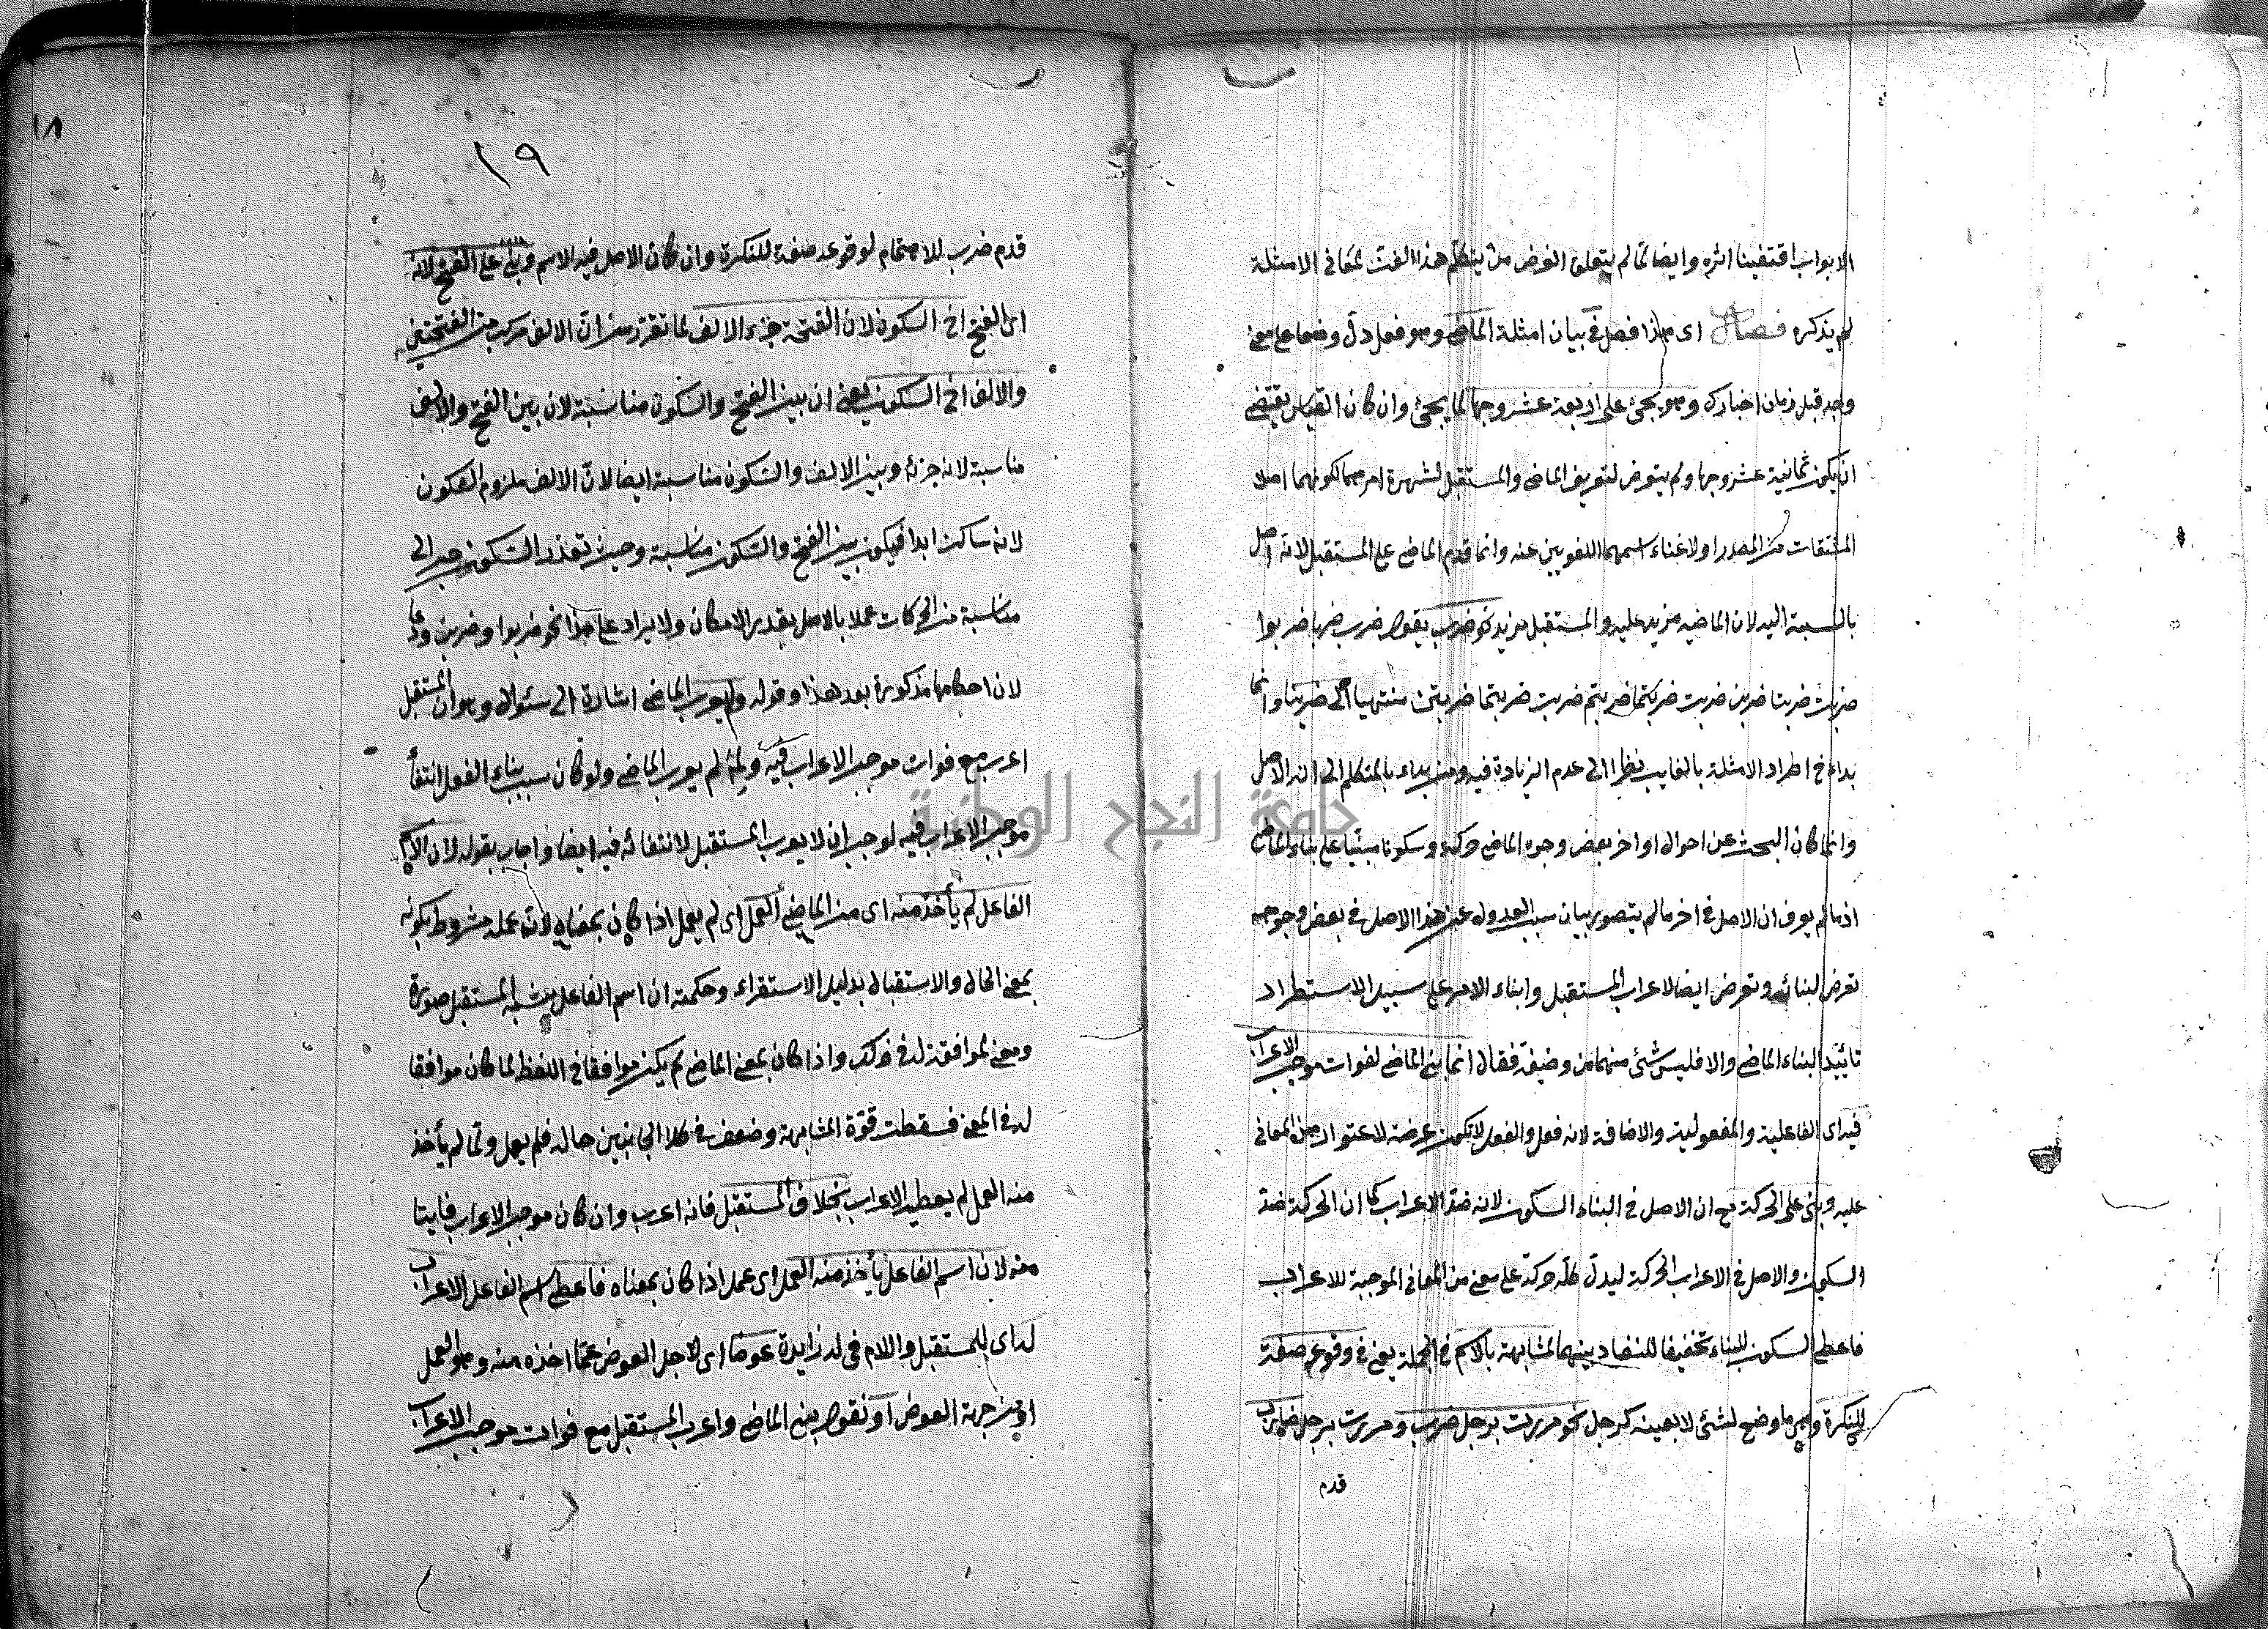 الابواب اقتفينا اثره وايضا لما لم يتعلق الغرض من يتكلم هذا الفن لمعانى الامثلة
لم يذكره فصل اى هذا فصل فى بيان امثلة الماضى وهو فعل دل وضعا على معنى
وجد قبل زمان اخبارك وهو يجئ على اربعة عشر وجها لما يجئ وان كان القياس يقتضى
ان يكون ثمانية عشر وجها ولم يتعرض لتعريف الماضى والمستقبل لشهرة امرهما لكونهما اصلا
المشتقات من المصدر اولا غناء اسمهما اللغويين عنه وانما قدم الماضى على المستقبل لانه اصل
بالنسبة اليه لان الماضيه مزيد عليه والمستقبل مزيد نحو ضرب يقول ضرب ضربا ضربوا
ضربت ضربتا ضربن ضربت ضربتما ضربتم ضربت ضربتما ضربتن منتهيا الى ضربنا وانما
بداء فى اطراد الامثلة بالغايب نظرا الى عدم الزيادة فيه ومن بداء بالمتكلم الى انه الاصل
وانما كان البحث عن احوال اواخر بعض وجوه الماضى حركة وسكونا مبنيا على بناء الماضى
اذ ما لم يعرف ان الاصل فى اخر ما لم يتصور بيان سبب العدول عن هذا الاصل فى بعض وجوهه
تعرض لبنائه وتعرض ايضا لاعراب المستقبل وابناء الامر على سبيل الاستطراد
تائيدا لبناء الماضى والا فليس شئ منهما من وضيفة فقال انما بنى الماضى لفوات موجب الاعراب
فيه اى الفاعلية والمفعولية والاضافة لانه فعل والفعل لا يكون عرضة لاعتوار هن المعانى
عليه وبنى على الحركة مع ان الاصل فى البناء السكون لانه ضد الاعراب كما ان الحركة ضد
السكون والاصل فى الاعراب الحركة ليدل كل حركة على معنى من المعانى الموجبة للاعراب
فاعطى السكون للبناء تخفيفا للتضاد بينهما لمشابهة بالاسم فى الجملة يعنى فى وقوعه صفة
للنكرة وهى ما وضع لشئ لا بعينه كرجل نحو مررت برجل ضرب ومررت برجل ضارب
قدم
١٨
١٩
قدم ضرب للاهتمام لوقوعه صفة للنكرة وان كان الاصل فيه الاسم وبنى على الفتح لانه
اى الفتح اخ السكون لان الفتحة جزء الالف لما تقرر من ان الالف مركب من الفتحتين
والالف اخ السكون يعنى ان بين الفتح والسكون مناسبة لان بين الفتح والالف
مناسبة لانه جزئه وبين الالف والسكون مناسبة ايضا لان الالف ملزوم السكون
لانه ساكن ابدا فيكون بين الفتح والسكون مناسبة وحيث تعذر السكون صير الى
مناسبة من الحركات عملا بالاصل بقدر الامكان ولا يراد على هذا نحو ضربوا وضربن ودعا
لان احكامها مذكورة بعد هذا وقوله ولم يعرب الماضى اشارة الى سئوال وهو ان المستقبل
اعرب مع فوات موجب الاعراب فيه ولم لم يعرب الماضى ولو كان سبب بناء الفعل انتفأ
موجب الاعراب فيه لوجب ان لا يعرب المستقبل لانتفائه فيه ايضا واجاب بقوله لان الاسم
الفاعل لم يأخذ منه اى من الماضى العمل اى لم يعمل اذا كان بمعناه لان عمله مشروط بكونه
بمعنى الحال والاستقبال بدليل الاستقراء وحكمته ان اسم الفاعل يشبه المستقبل صورة
ومعنى لموافقة له فى حركة واذا كان بمعنى الماضى لم يكن موافقا فى اللفظ لما كان موافقا
له فى المعنى فسقطت قوة المشابهة وضعف فى كلا الجانبين حاله فلم يعمل ولما لم يأخذ
منه العمل لم يعطيه الاعراب بخلاف المستقبل فانه اعرب وان كان موجب الاعراب فايتا
منه لان اسم الفاعل يأخذ منه العمل اى عمله اذا كان بمعناه فاعطى اسم الفاعل الاعراب
له اى للمستقبل واللام فى له زايدة عوضا اى لاجل العوض عما اخذه منه وهو العمل
او من جهة العوض او نقول بنى الماضى واعرب المستقبل مع فوات موجب الاعراب
جامعة النجاح الوطنية